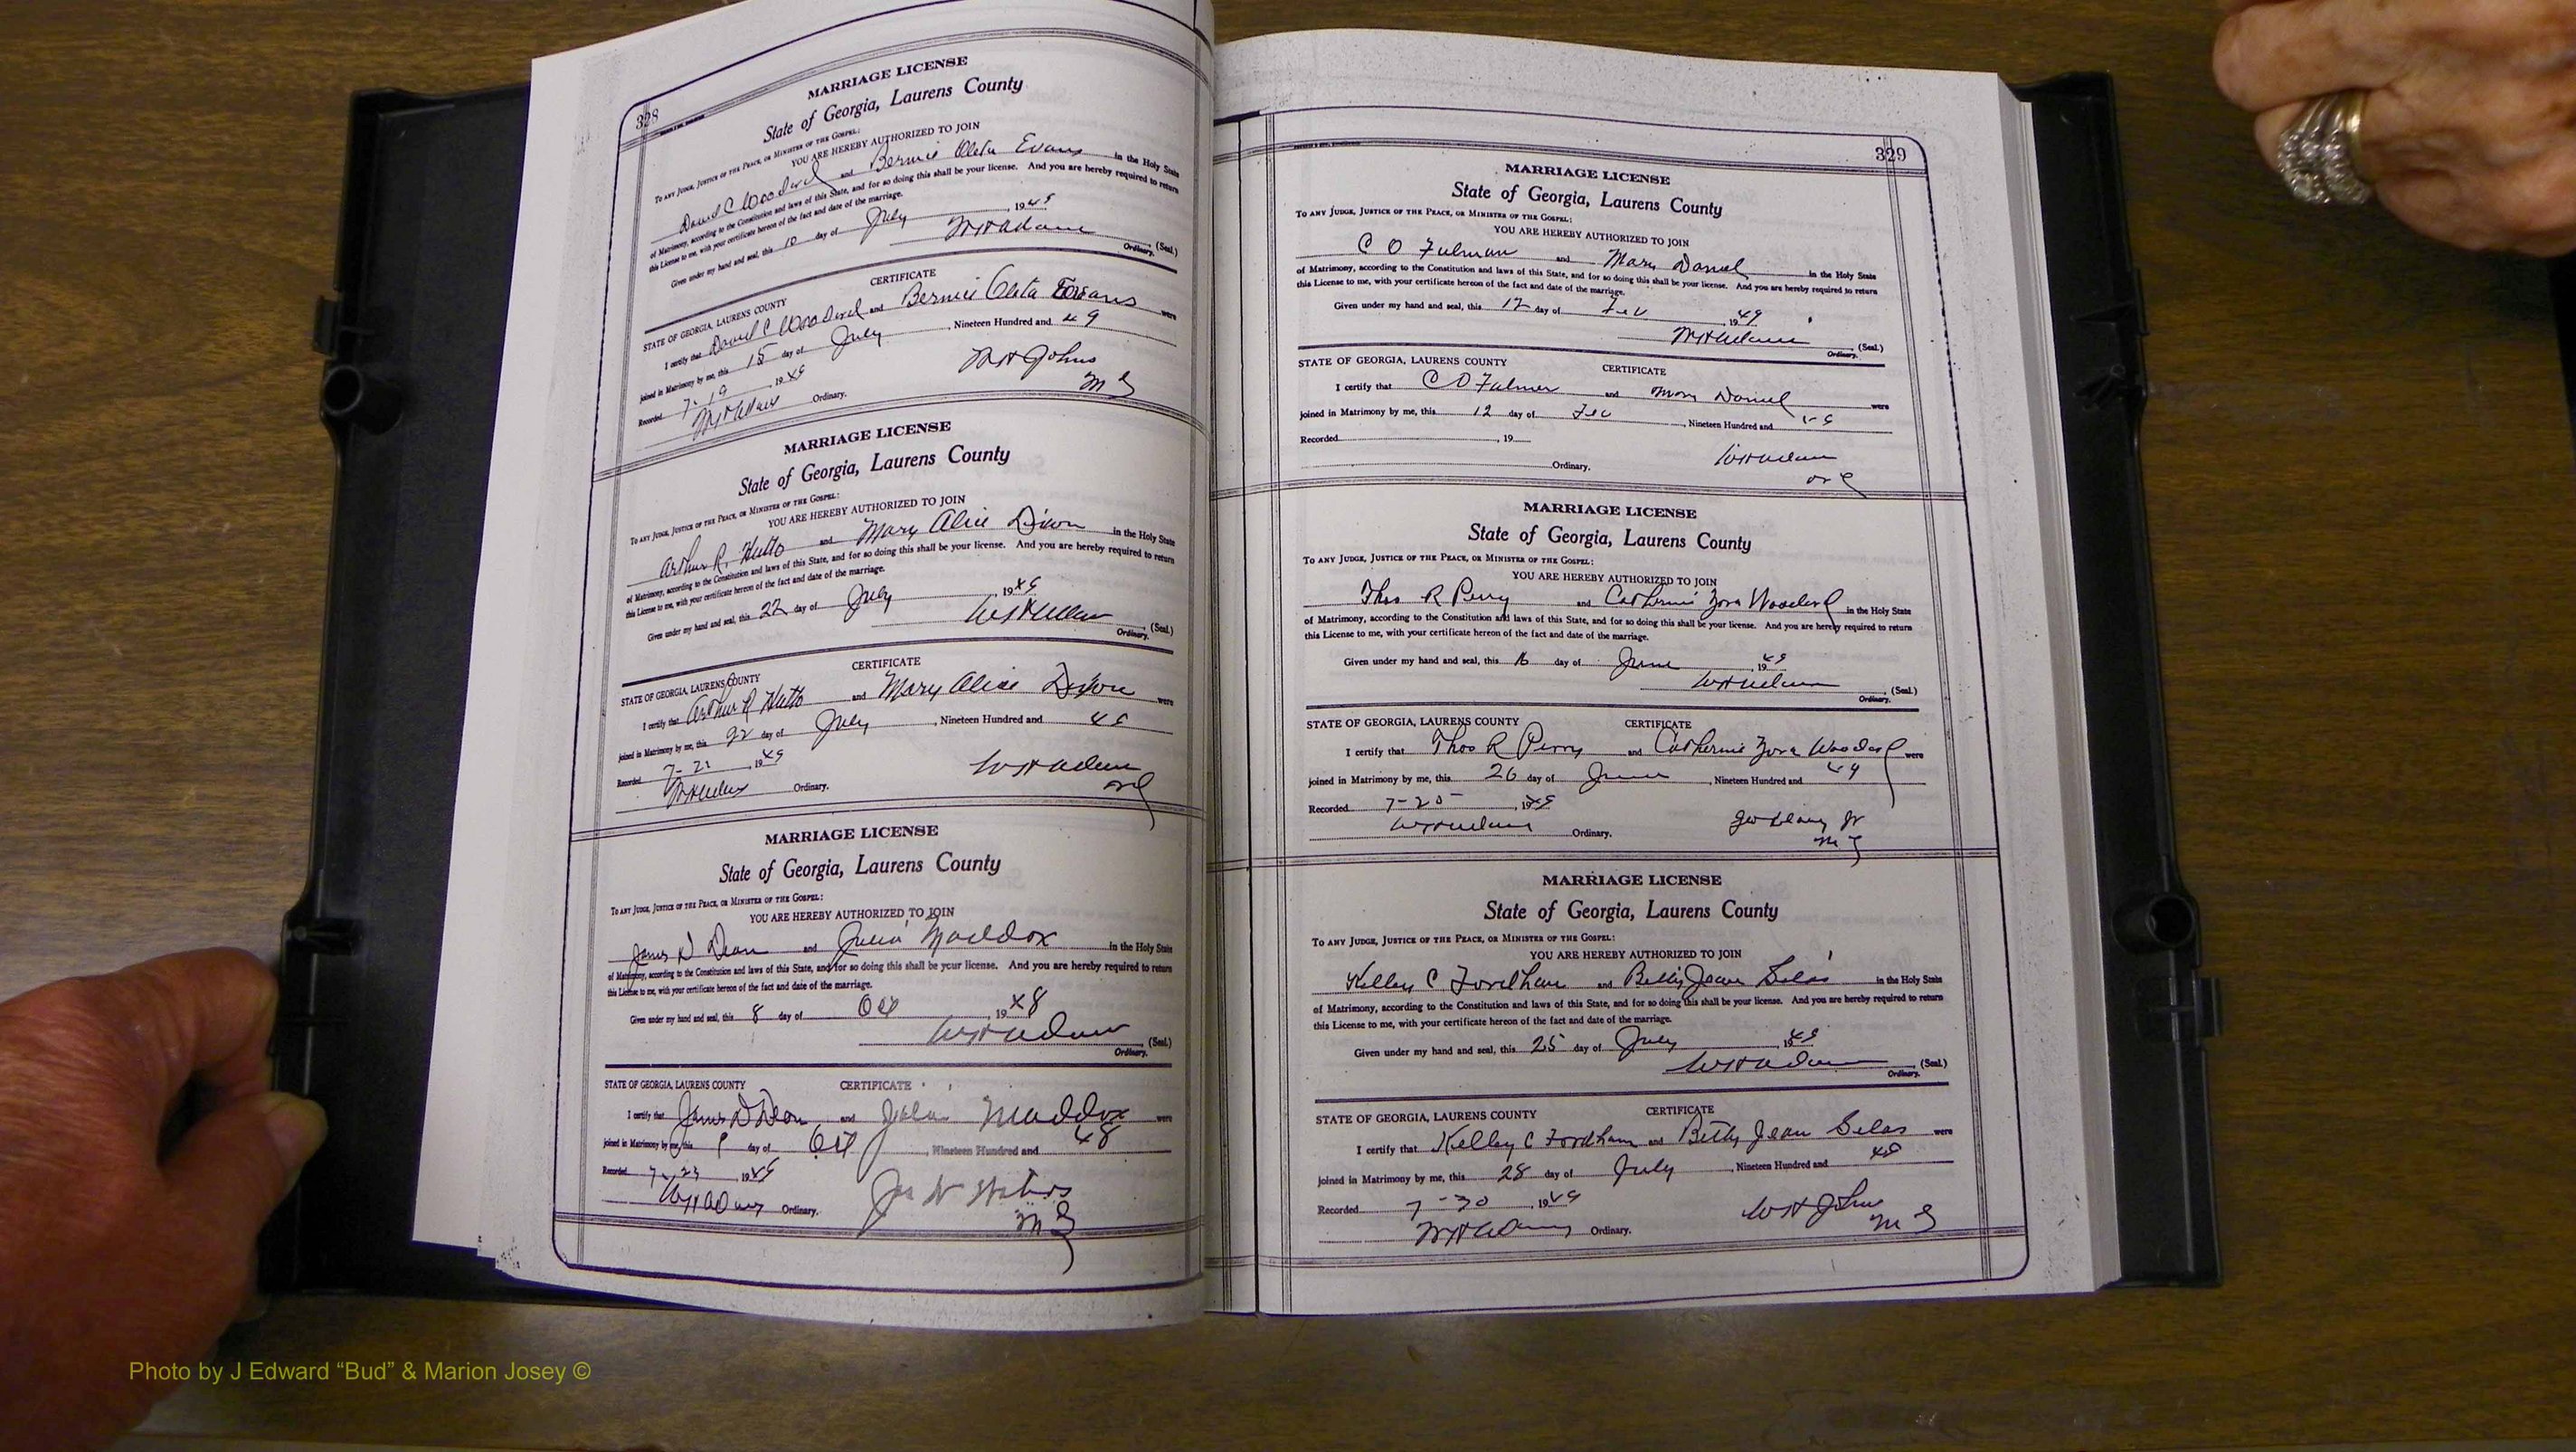 328
MARRIAGE LICENSE
State of Georgia, Laurens County
TO ANY JUDGE, JUSTICE OF THE PEACE, OR MINISTER OF THE GOSPEL:
YOU ARE HEREBY AUTHORIZED TO JOIN
C Woodard and Bernice Oleta Evans in the Holy State
of Matrimony, according to the Constitution and laws of this State, and for so doing this shall be your license. And you are hereby required to return
this License to me, with your certificate hereon of the fact and date of the marriage.
Given under my hand and seal, this 10 day of July, 1949
(Seal.)
Ordinary.
CERTIFICATE
STATE OF GEORGIA, LAURENS COUNTY
I certify that C Woodard and Oleta Evans were
joined in Matrimony by me, this 15 day of July, Nineteen Hundred and 49
Recorded 7-19, 1949
W H Johns
M G
Ordinary.
MARRIAGE LICENSE
State of Georgia, Laurens County
TO ANY JUDGE, JUSTICE OF THE PEACE, OR MINISTER OF THE GOSPEL:
YOU ARE HEREBY AUTHORIZED TO JOIN
Arthur R. Hutto and Mary Alice Dixon in the Holy State
of Matrimony, according to the Constitution and laws of this State, and for so doing this shall be your license. And you are hereby required to return
this License to me, with your certificate hereon of the fact and date of the marriage.
Given under my hand and seal, this 22 day of July, 1949
(Seal.)
Ordinary.
CERTIFICATE
STATE OF GEORGIA, LAURENS COUNTY
I certify that Arthur R Hutto and Mary Alice Dixon were
joined in Matrimony by me, this 22 day of July, Nineteen Hundred and 49
Recorded, 1949
W H Adams
ord
Ordinary.
MARRIAGE LICENSE
State of Georgia, Laurens County
TO ANY JUDGE, JUSTICE OF THE PEACE, OR MINISTER OF THE GOSPEL:
YOU ARE HEREBY AUTHORIZED TO JOIN
James D Dean and Julia Maddox in the Holy State
of Matrimony, according to the Constitution and laws of this State, and for so doing this shall be your license. And you are hereby required to return
this License to me, with your certificate hereon of the fact and date of the marriage.
Given under my hand and seal, this 8 day of Oct, 1948
W H Adams (Seal.)
Ordinary.
STATE OF GEORGIA, LAURENS COUNTY CERTIFICATE
I certify that James D Dean and Julia Maddox were
joined in Matrimony by me, this 9 day of Oct, Nineteen Hundred and 48
Recorded 7-23, 1949
W H Adams Ordinary.
M G
329
MARRIAGE LICENSE
State of Georgia, Laurens County
TO ANY JUDGE, JUSTICE OF THE PEACE, OR MINISTER OF THE GOSPEL:
YOU ARE HEREBY AUTHORIZED TO JOIN
C O Fulmer and Mary Daniel in the Holy State
of Matrimony, according to the Constitution and laws of this State, and for so doing this shall be your license. And you are hereby required to return
this License to me, with your certificate hereon of the fact and date of the marriage.
Given under my hand and seal, this 12 day of Feb, 1949
W H Adams (Seal.)
Ordinary.
STATE OF GEORGIA, LAURENS COUNTY CERTIFICATE
I certify that C O Fulmer and Mary Daniel were
joined in Matrimony by me, this 12 day of Feb, Nineteen Hundred and
Recorded, 19
W H Adams
Ordinary.
ord
MARRIAGE LICENSE
State of Georgia, Laurens County
TO ANY JUDGE, JUSTICE OF THE PEACE, OR MINISTER OF THE GOSPEL:
YOU ARE HEREBY AUTHORIZED TO JOIN
Thos R Perry and Catherine Zora Woodard in the Holy State
of Matrimony, according to the Constitution and laws of this State, and for so doing this shall be your license. And you are hereby required to return
this License to me, with your certificate hereon of the fact and date of the marriage.
Given under my hand and seal, this 16 day of June, 1949
W H Adams (Seal.)
Ordinary.
STATE OF GEORGIA, LAURENS COUNTY CERTIFICATE
I certify that Thos R Perry and Catherine Zora Woodard were
joined in Matrimony by me, this 26 day of June, Nineteen Hundred and 49
Recorded 7-25, 1949
W H Adams Ordinary.
M G
MARRIAGE LICENSE
State of Georgia, Laurens County
TO ANY JUDGE, JUSTICE OF THE PEACE, OR MINISTER OF THE GOSPEL:
YOU ARE HEREBY AUTHORIZED TO JOIN
Kelley C Fordham and Betty Jean Selas in the Holy State
of Matrimony, according to the Constitution and laws of this State, and for so doing this shall be your license. And you are hereby required to return
this License to me, with your certificate hereon of the fact and date of the marriage.
Given under my hand and seal, this 25 day of July, 1949
W H Adams (Seal.)
Ordinary.
STATE OF GEORGIA, LAURENS COUNTY CERTIFICATE
I certify that Kelley C Fordham and Betty Jean Selas were
joined in Matrimony by me, this 28 day of July, Nineteen Hundred and 49
Recorded 7-30, 1949
W H Johns
M G
W H Adams Ordinary.
Photo by J Edward “Bud” & Marion Josey ©